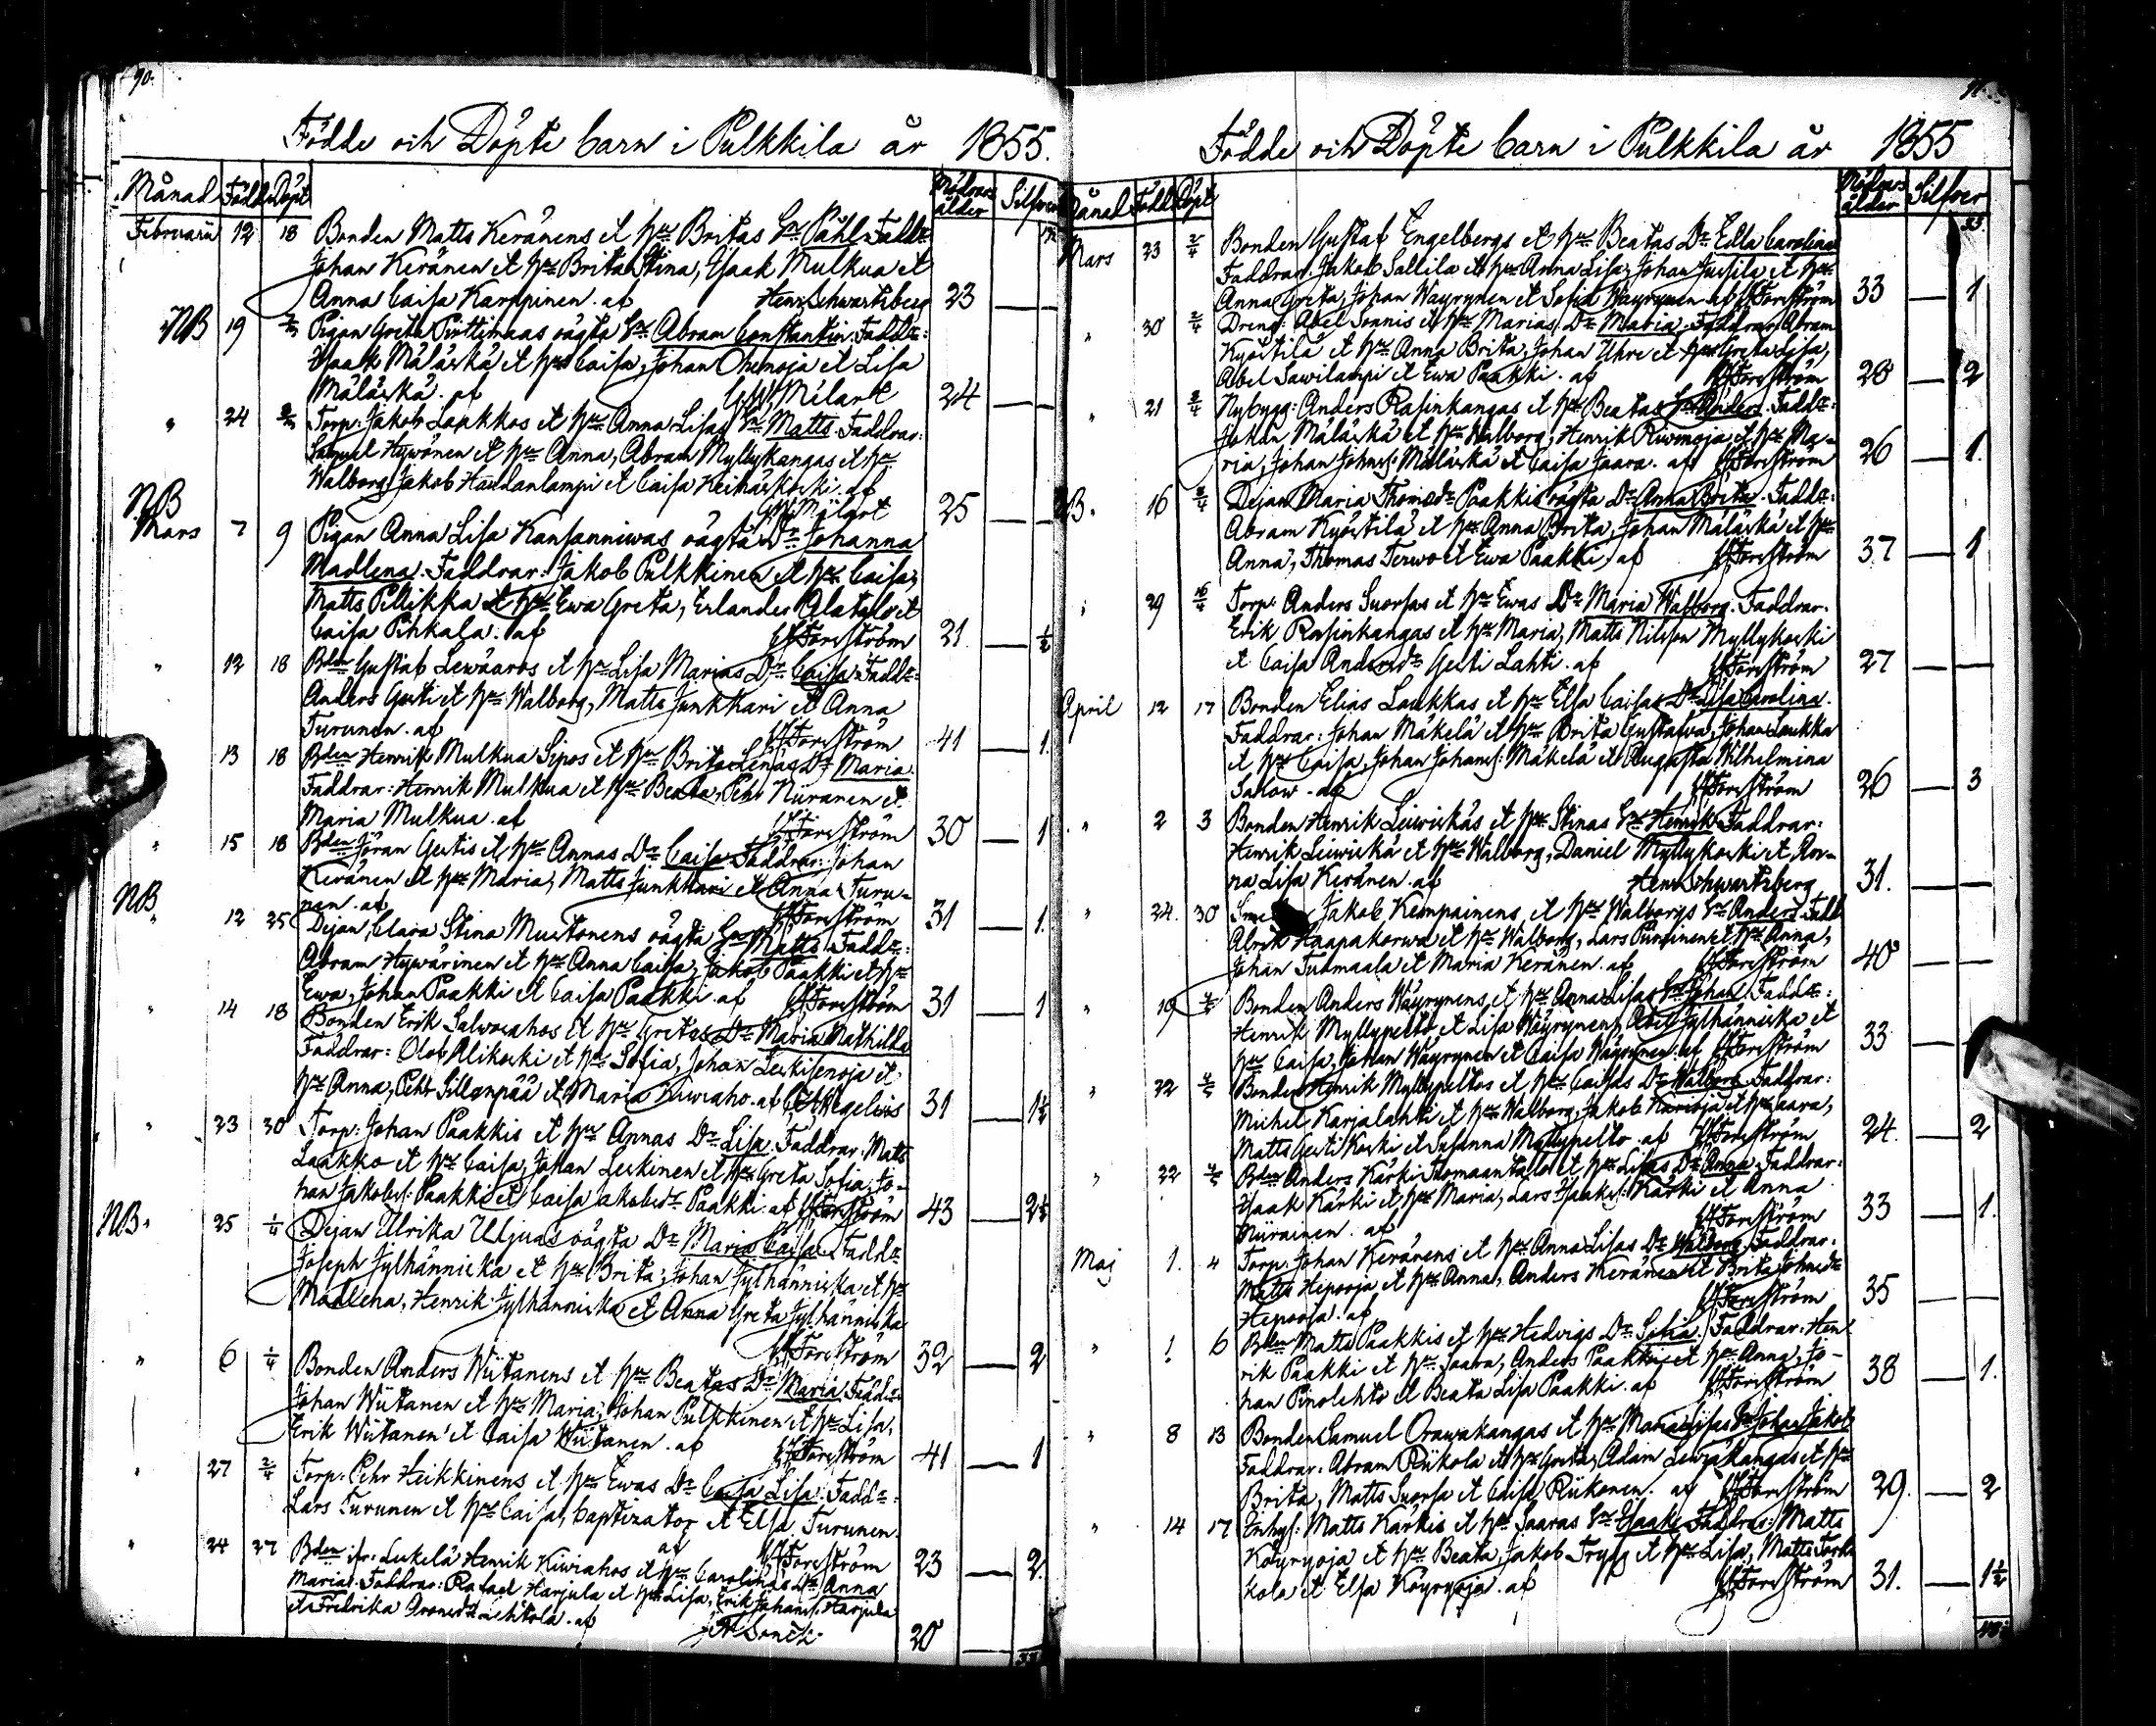 90.
Födde och Döpte barn i Pulkkila år 1855.
Månad Född Döpt Mödrars ålder Silfver
Februarii 12 18 Bonden Matts Keränens et hru Britas Sn Påhl. Faddr:
Johan Keränen et hru Brita Stina, Isaak Mulkua et
Anna Caisa Karppinen. af Henr Schwartzberg 23 —
NB 19 Pigan Greta Puttimaas oägta Sn Abram Constantin. Faddr:
Isaak Mäläskä et hru Caisa, Johan Ohenoja et Lisa
Mäläskä. af 24 —
" 24 Torp: Jakob Laukkos et hru Anna Lisas Sn Matts. Faddrar:
Samuel Hywönen et hru Anna, Abram Myllykangas et hru
Walborg, Jakob Haudanlampi et Caisa Keihäskoski. af
25 —
NB
Mars 7 9 Pigan Anna Lisa Kansanniwas oägta Dr Johanna
Madlena. Faddrar: Jakob Pulkkinen et hru Caisa,
Matts Pellikka et hru Ewa Greta, Erlandes Alatalo et
Caisa Pihkala. af Forsström 21 — 1/2
" 12 18 Bden Gustaf Lewäaros et hru Lisa Marias Dr Caisa. Faddr:
Anders Gesti et hru Walborg, Matts Junkkari et Anna
Turunen. af Forsström 41 — 1.
13 18 Bden Henrik Mulkua Sipos et hru Brita Lenas Dr Maria.
Faddrar: Henrik Mulkua et hru Beata, Pehr Niiranen et
Maria Mulkua. af Forsström 30 — 1
" 15 18 Bden Göran Gestis et hru Annas Dr Caisa. Faddrar: Johan
Keränen et hru Maria, Matts Junkkari et Anna Turu-
nen. af Forsström 31 — 1.
NB
" 12 25 Dejan, Clara Stina Mustonens oägta Sn Matts. Faddr:
Abram Hywärinen et hru Anna Caisa, Jakob Paakki et hru
Ewa, Johan Paakki et Caisa Paakki. af Forsström 31 — 1
" 14 18 Bonden Erik Salworahos et hru Gretas Dr Maria Mathilda
Faddrar: Olof Alikoski et hru Sofia, Johan Leskisenoja et
hru Anna, Pehr Sillanpää et Maria Kiwiaho. af 31 — 1½
" 23 30 Torp: Johan Paakkis et hru Annas Dr Lisa. Faddrar: Matts
Laakko et hru Caisa, Johan Leskinen et hru Greta Sofia, Jo-
han Jakobss: Paakki et Caisa Jakobsdr Paakki. af Forsström 43 — 2½
NB. 25 1/4 Dejan Ulrika Uljuas oägta Dr Maria Caisa. Faddr:
Joseph Jylhänniska et hru Brita, Johan Jylhänniska et hru
Madlena, Henrik Jylhänniska et Anna Greta Jylhänniska
Forsström 32 — 2
" 6 1/4 Bonden Anders Wiitanens et hru Beatas Dr Maria. Faddr:
Johan Wiitanen et hru Maria, Johan Pulkkinen et hru Lisa,
Erik Wiitanen et Caisa Wiitanen. af Forsström 41 — 1
" 27 2/4 Torp: Pehr Heikkinens et hru Ewas Dr Caisa Lisa. Faddr:
Lars Turunen et hru Caisa, Captizator et Elsa Turunen.
af Forsström 23 — 2.
" 24 27 Bden ifr: Leskelä Henrik Kiwiahos et hru Carolinas Dr Anna
Maria. Faddrar: Rafael Harjula et hru Lisa, Erik Johanss: Harjula
et Fredrika af 20 —
91.
Födde och Döpte barn i Pulkkila år 1855
Månad Född Döpt Mödrars ålder Silfver
33
Mars 23 2/4 Bonden Gustaf Engelbergs et hru Beatas Dr Edla Carolina
Faddrar. Jakob Sallila et hru Anna Lisa, Johan Jussila et hru
Anna Greta, Johan Wäyrynen et Sofia Wäyrynen. af Forsström 33 — 1
" 30 2/4 Dreng: Abel Sonnis et hru Marias Dr Maria. Faddrar Abram
Kyöstilä et hru Anna Brita, Johan et hru Greta Lisa,
Abel Sawilampi et Ewa Paakki. af Forsström 28 — 2
" 21 Nybygg: Anders Rasinkangas et hru Beatas Sn Anders. Faddr:
Johan Mäläskä et hru Walborg, Henrik et hru Ma-
ria, Johan Johanss: Mäläskä et Caisa Jaara. af Forsström 26 — 1.
NB. 16 Dejan Maria Thomsdr Paakkis oägta Dr Anna Brita. Faddr:
Abram Kyöstilä et hru Anna Brita, Johan Mäläskä et hru
Anna, Thomas Terwo et Ewa Paakki. af Forsström 37 — 1
" 29 16/4 Torp: Anders Suorsas et hru Ewas Dr Maria Walborg. Faddrar.
Erik Rasinkangas et hru Maria, Matts Nilsson Myllykoski
et Caisa Andersdr Gesti Lahti. af Forsström 27 — —
April 12 17 Bonden Elias Laukkas et hru Elsa Caisas Dr Lisa Carolina.
Faddrar: Johan Mäkelä et hru Brita Gustafwa, Johan Laukka
et hru Caisa, Johan Johanss: Mäkelä et Augusta Wilhelmina
Sahow. af Forsström 26 — 3
" 2 3 Bonden Henrik Leiwiskäs et hru Stinas Sn Henrik. Faddrar:
Henrik Leiwiskä et hru Walborg, Daniel Myllykoski et An-
na Lisa Keränen. af Henr Schwartzberg 31. — —
" 24. 30 Jakob Kemppainens, et hru Walborgs Sn Anders. Fadd
Alrik Haapakorwa et hru Walborg, Lars et hru Anna,
Johan Tuomaala et Maria Keränen. af Forsström 40 — —
" 19 Bonden Anders Wäyrynens, et hru Anna Lisas Sn Johan. Faddr:
Henrik Myllypelto et Lisa Wäyrynen, Abel Jylhänniska et
hru Caisa, Johan Wäyrynen et Caisa Wäyrynen. af Forsström 33 —
" 22 4/5 Bonden Henrik Myllypeltos et hru Caisas Dr Walborg. Faddrar:
Michel Karjalahti et hru Walborg, Jakob et hru Saara,
Matts Gesti Koski et Susanna Myllypelto. af Forsström 24. — 2
" 22 4/5 Bden Anders Kärki Thomaantalos et hru Lisas Dr Anna. Faddrar:
Isaak Kärki et hru Maria, Lars Isaakss: Kärki et Anna
Niirainen. af Forsström 33 — 1.
Maj 1. 4 Torp: Johan Keränens et hru Anna Lisas Dr Walborg. Faddrar:
Matts Hepooja et hru Anna, Anders Keränen et Brita Johnsdr
Hepooja. af Forsström 35 — —
" 1 6 Bden Matts Paakkis et hru Hedvigs Dr Sofia. Faddrar: Hen-
rik Paakki et hru Saara, Anders Paakki et hru Anna, Jo-
han Pinolehto et Beata Lisa Paakki. af Forsström 38 — 1.
" 8 13 Bonden Samuel Orawakangas et hru Maria Lisas Sn Johan Jakob
Faddrar. Abram Riikola et hru Greta, Adam Lewiäkangas et hru
Brita, Matts Suorsa et Caisa Riikonen. af Forsström 29. — 2
" 14 17 Inhys: Matts Kärkis et hru Saaras Sn Isaak. Faddrar: Matts
Köyryoja et hru Beata, Jakob Trygg et hru Lisa, Matts
kola et Elsa Köyryoja. af Forsström 31. — 1½